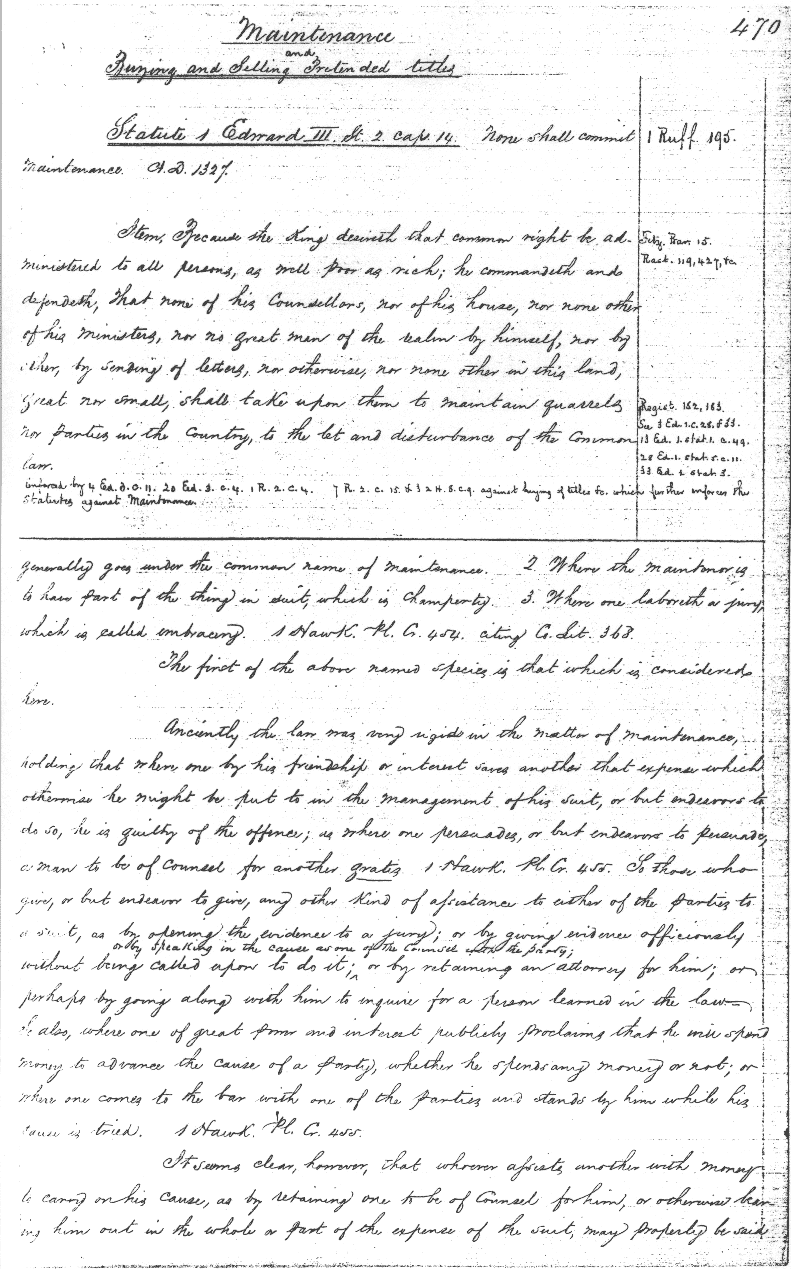 470
Maintenance
and
Buying and Selling Pretended titles
Statute 1 Edward III. St. 2. cap. 14. None shall commit
1 Ruff. 195.
Maintenance. A.D. 1327.
Item, Because the King desireth that common right be ad-
ministered to all persons, as well poor as rich; he commandeth and
defendeth, That none of his Counsellors, nor of his house, nor none other
of his ministers, nor no great man of the realm by himself, nor by
other, by sending of letters, nor otherwise, nor none other in this land,
great nor small, shall take upon them to maintain quarrels
nor parties in the Country, to the let and disturbance of the Common
law.
15.
Rast. 119, 427, &c.
Regist. 182, 183.
See 3 Ed. 1. c. 28. & 33.
13 Ed. 1. stat. 1. c. 49.
28 Ed. 1. stat. 3. c. 11.
33 Ed. 1 stat. 3.
Enforced by 4 Ed. 3. c. 11. 20 Ed. 3. c. 4. 1 R. 2. c. 4. 7 R. 2. c. 15. & 32 H. 8. c. 9. against buying of titles &c. which further enforces the
Statutes against Maintenance.
generally goes under the common name of maintenance. 2. Where the maintenor is
to have part of the thing in suit, which is champerty. 3. Where one laboreth a jury,
which is called embracing. 1 Hawk. Pl. Cr. 454. citing Co. Lit. 368.
The first of the above named species is that which is considered
here.
Anciently the law was very rigid in the matter of maintenance,
holding that where one by his friendship or interest saves another that expense which
otherwise he might be put to in the management of his suit, or but endeavors to
do so, he is guilty of the offence; as where one persuades, or but endeavors to persuade,
a man to be of counsel for another gratis. 1 Hawk. Pl. Cr. 455. So those who
give, or but endeavor to give, any other kind of assistance to either of the parties to
a suit, as by opening the evidence to a jury; or by giving evidence officiously
or by speaking in the cause as one of the Counsel with the party;
without being called upon to do it; ^ or by retaining an attorney for him; or
perhaps by going along with him to inquire for a person learned in the law.
So also, where one of great power and interest publicly proclaims that he will spend
money to advance the cause of a party, whether he spends any money or not; or
where one comes to the bar with one of the parties and stands by him while his
cause is tried. 1 Hawk. Pl. Cr. 455.
It seems clear, however, that whoever assists another with money
to carry on his cause, as by retaining one to be of Counsel for him, or otherwise bear-
ing him out in the whole or part of the expense of the suit, may properly be said